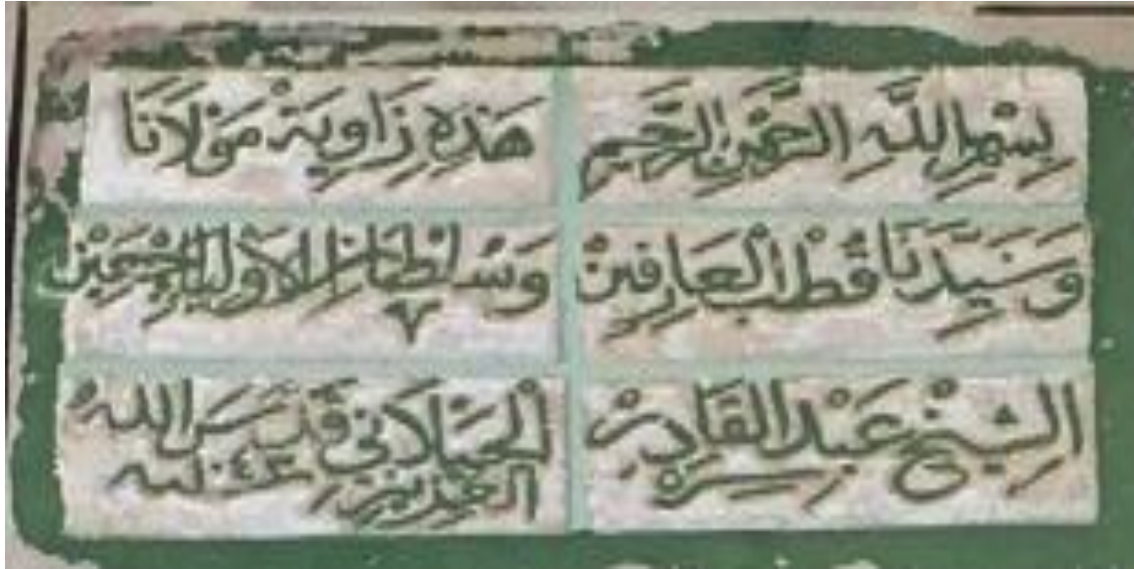 بِسْمِ اللَّهِ الرَّحْمٰنِ الرَّحِيمِ هَذِهِ زَاوِيَةْ مَوْلَانَا
وَسَيِّدِنَا قُطْبِ الْعَارِفِينْ وَسُلْطَانِ الْاَوْلِيَا
الشَّيْخْ عَبْدِ الْقَادِرْ الْجِيلَانِي قَدَّسَ اللهُ
سِرَّهُ الْعَزِيزْ